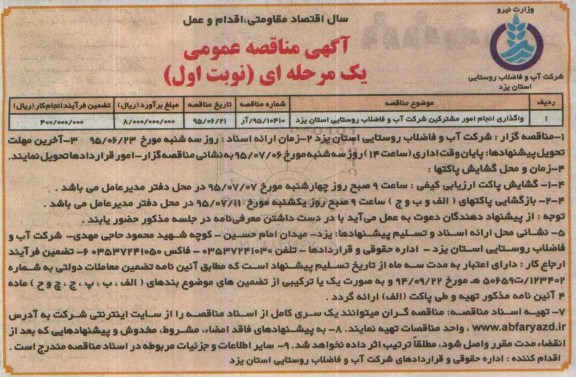 سال اقتصاد مقاومتی،اقدام و عمل
وزارت نیرو
آگهی مناقصه عمومی
یک مرحله ای (نوبت اول)
شرکت آب و فاضلاب روستایی
استان یزد
ردیف موضوع مناقصه شماره مناقصه تاریخ مناقصه مبلغ برآورد (ریال) تضمین فرآیند انجام کار (ریال)
۱ واگذاری انجام امور مشترکین شرکت آب و فاضلاب روستایی استان یزد ۹۵/۱۰۴۱۰/آر ۹۵/۰۶/۲۱ ۸/۰۰۰/۰۰۰/۰۰۰ ۴۰۰/۰۰۰/۰۰۰
۱-مناقصه گزار : شرکت آب و فاضلاب روستایی استان یزد ۲-زمان ارائه اسناد : روز سه شنبه مورخ ۹۵/۰۶/۲۳ ۳-آخرین مهلت
تحویل پیشنهادها: پایان وقت اداری (ساعت ۱۴) روز سه شنبه مورخ ۹۵/۰۷/۰۶ به نشانی مناقصه گزار - امور قراردادها تحویل نمایند.
۴-زمان و محل گشایش پاکتها :
۴-۱- گشایش پاکت ارزیابی کیفی : ساعت ۹ صبح روز چهارشنبه مورخ ۹۵/۰۷/۰۷ در محل دفتر مدیرعامل می باشد .
۴-۲- بازگشایی پاکتهای ( الف و ب و ج ) ساعت ۹ صبح روز یکشنبه مورخ ۹۵/۰۷/۱۱ در محل دفتر مدیرعامل می باشد .
توجه : از پیشنهاد دهندگان دعوت به عمل می‌آید با در دست داشتن معرفی‌نامه در جلسه مذکور حضور یابند .
۵- نشانی محل ارائه اسناد و تسلیم پیشنهادها: یزد- میدان امام حسین- کوچه شهید محمود حاجی مهدی- شرکت آب و
فاضلاب روستایی استان یزد - اداره حقوقی و قراردادها - تلفن ۰۳۵۳۷۲۴۱۰۳۰ - فاکس ۰۳۵۳۷۲۴۱۰۵۰ ۶- تضمین فرآیند
ارجاع کار : دارای اعتبار به مدت سه ماه از تاریخ تسلیم پیشنهاد است که مطابق آئین نامه تضمین معاملات دولتی به شماره
۱۲۳۴۰۲/ت۵۰۶۵۹ هـ مورخ ۹۴/۰۹/۲۲ و به صورت یک یا ترکیبی از تضمین های موضوع بندهای ( الف ، ب ، پ ، ج ، چ و ح ) ماده
۴ آئین نامه مذکور تهیه و طی پاکت (الف) ارائه گردد .
۷- تهیه اسناد مناقصه: مناقصه گران میتوانند یک سری کامل از اسناد مناقصه را از سایت اینترنتی شرکت به آدرس
www.abfaryazd.ir ، واحد مناقصات تهیه نمایند. ۸- به پیشنهادهای فاقد امضاء، مشروط، مخدوش و پیشنهادهایی که بعد از
انقضاء مدت مقرر واصل شود، مطلقاً ترتیب اثر داده نخواهد شد. ۹- سایر اطلاعات و جزئیات مربوطه در اسناد مناقصه مندرج است .
اقدام کننده : اداره حقوقی و قراردادهای شرکت آب و فاضلاب روستایی استان یزد